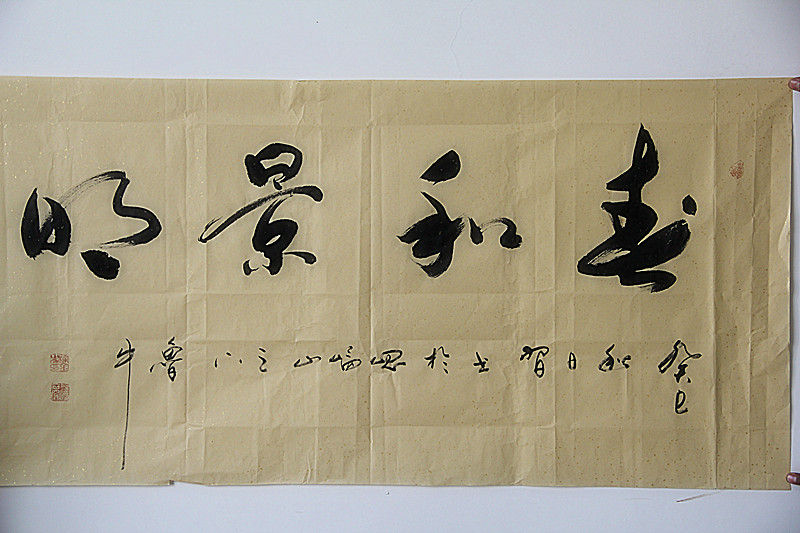 春和景明
癸巳秋日習書於崂山之 魯牛